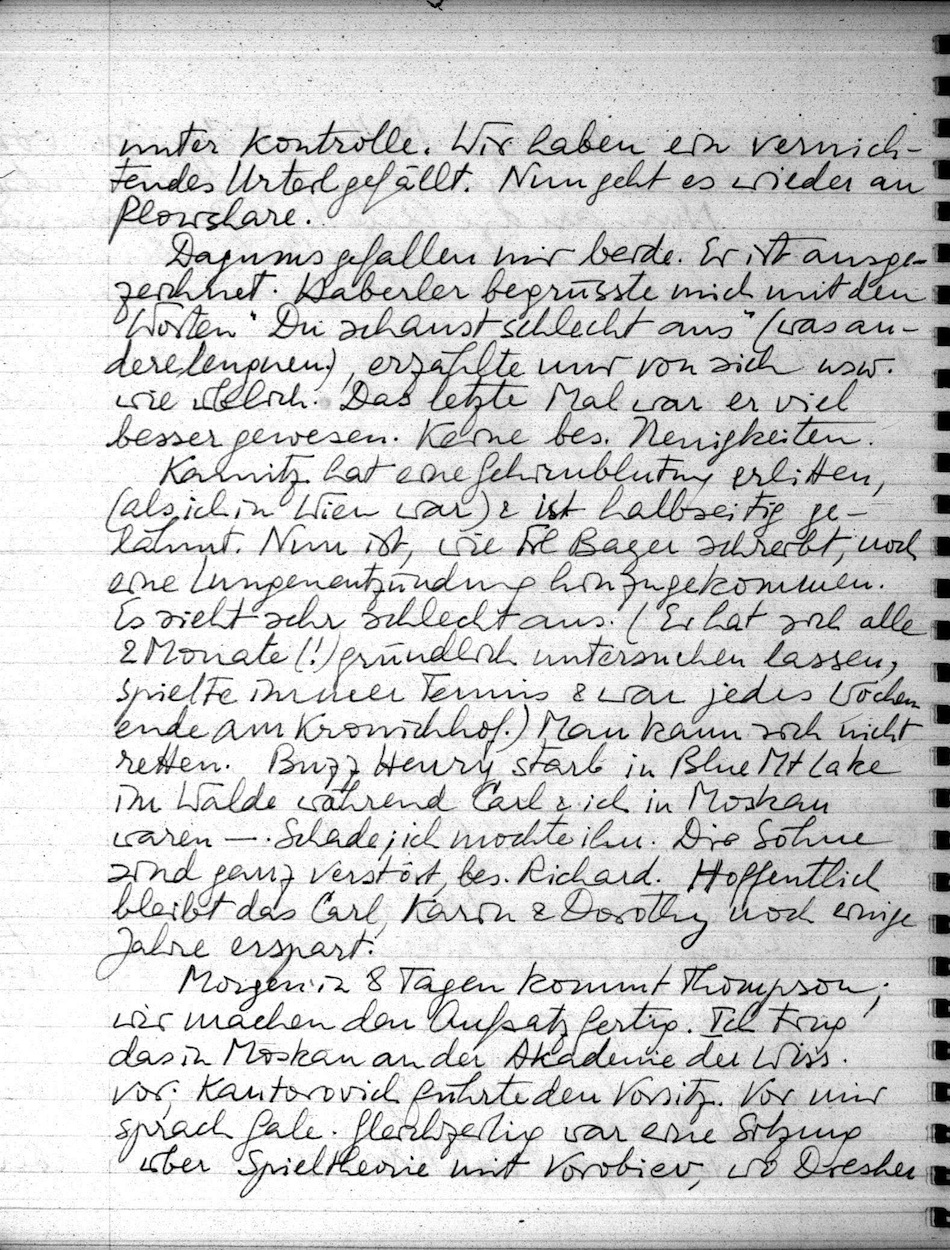 unter Kontrolle. Wir haben ein vernich-
tendes Urteil gefällt. Nun geht es wieder an
Plowshare.
Dagums gefallen mir beide. Er ist ausge-
zeichnet. Haberler begrüsste mich mit den
Worten "Du schaust schlecht aus" (was an-
dere leugnen), erzählte nur von sich usw.
wie üblich. Das letzte Mal war er viel
besser gewesen. Keine bes. Neuigkeiten.
Kamitz hat eine Gehirnblutung erlitten,
(als ich in Wien war) & ist halbseitig ge-
lähmt. Nun ist, wie Frl Bayer schreibt, noch
eine Lungenentzündung hinzugekommen.
Es sieht sehr schlecht aus. (Er hat sich alle
2 Monate (!) gründlich untersuchen lassen,
spielte immer Tennis & war jedes Wochen
ende am Kronichhof.) Man kann sich nicht
retten. Buzz Henry starb in Blue Mt Lake
im Walde während Carl & ich in Moskau
waren —. Schade, ich mochte ihn. Die Söhne
sind ganz verstört, bes. Richard. Hoffentlich
bleibt das Carl, Karin & Dorothy noch einige
Jahre erspart.
Morgen in 8 Tagen kommt Thompson;
wir machen den Aufsatz fertig. Ich trug
das in Moskau an der Akademie der Wiss.
vor; Kantorovich führte den Vorsitz. Vor mir
sprach Gale. Gleichzeitig war eine Sitzung
über Spieltheorie mit Vorobiev, wo Dresher